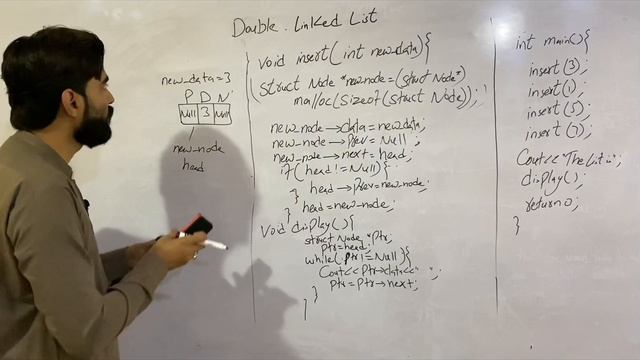 Double Linked List
new_data=3
P D N
Null 3 Null
new_node
head
void insert(int new_data){
(struct Node *newnode=(struct Node*)
malloc(sizeof(struct Node));
new_node→data=new_data;
new_node→prev=Null;
new_node→next=head;
if(head!=Null){
head→prev=new_node;
}
head=new_node;
}
Void display(){
struct Node *ptr;
ptr=head;
while(ptr!=Null){
Cout<<ptr→data<<" ";
ptr=ptr→next;
}
}
int main(){
insert(3);
insert(1);
insert(5);
insert(7);
Cout<<"The List is";
display();
return 0;
}